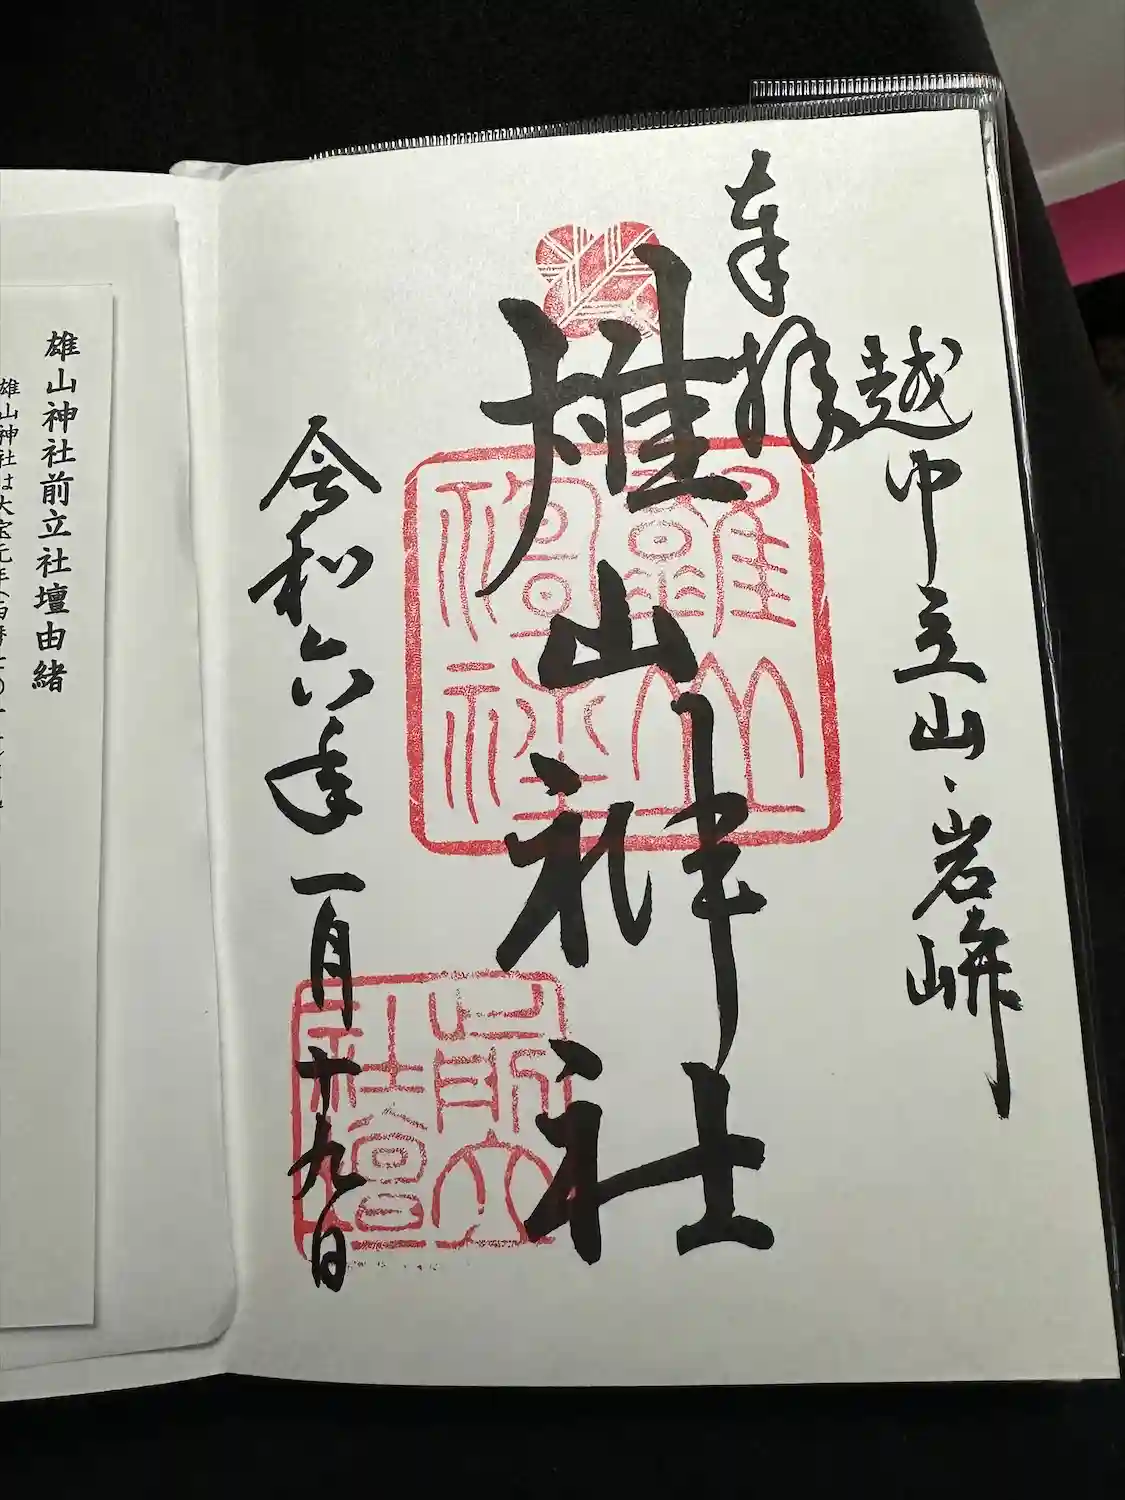 奉拝
越中立山・岩峅
雄山神社
令和六年一月十九日
雄山神社
前立社壇
雄山神社前立社壇由緒
雄山神社は大宝元年